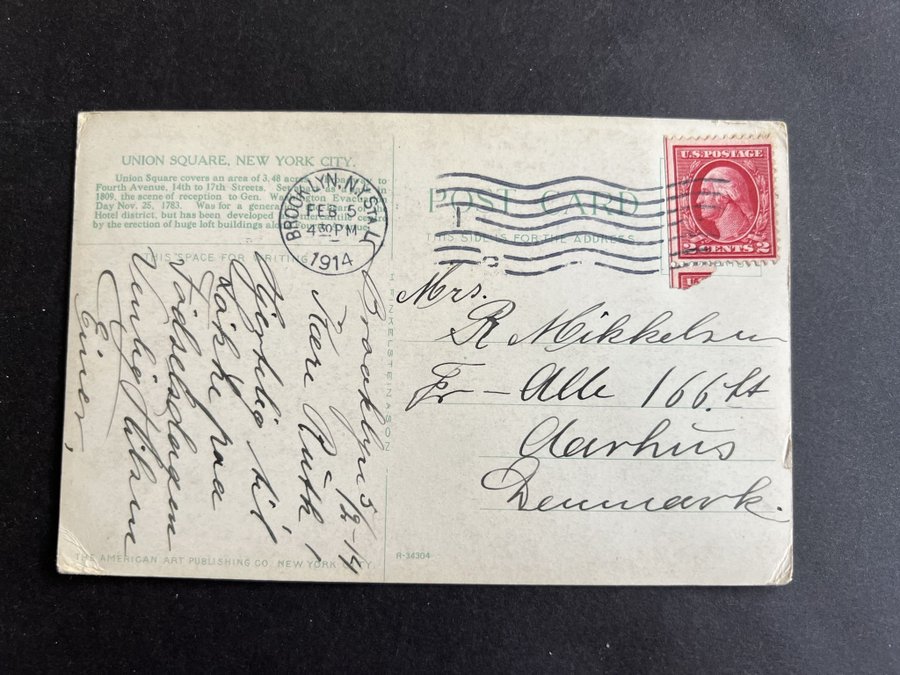 UNION SQUARE, NEW YORK CITY.
Union Square covers an area of 3.48 acres, to
Fourth Avenue, 14th to 17th Streets. Set in
1809, the scene of reception to Gen. Washington Evacu
Day Nov. 25, 1783. Was for a general
Hotel district, but has been developed mercantile
by the erection of huge loft buildings along
THIS SPACE FOR WRITING
POST CARD
THIS SIDE IS FOR THE ADDRESS
BROOKLYN, N.Y. STA. L
FEB 5
4 30 PM
1914
U.S. POSTAGE
2 CENTS 2
Brooklyn 5/2-14
Kære Ruth!
Hjertelig til
paa
Fødselsdagen
Venlig Hilsen
Einer
Mrs.
R Mikkelsen
Fr - Alle 166. St
Aarhus
Denmark.
THE AMERICAN ART PUBLISHING CO. NEW YORK CITY.
R-34304